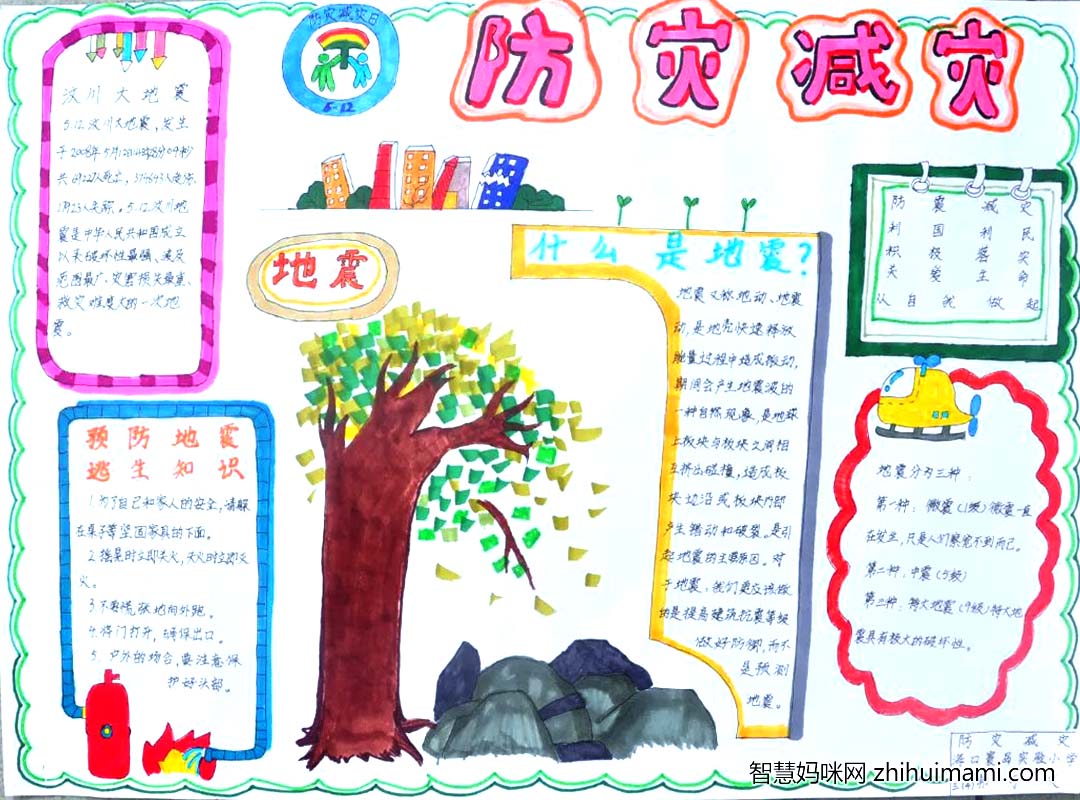 防灾减灾
防灾减灾日
5·12
汶川大地震
5.12汶川大地震，发生
于2008年5月12日14时28分04秒
共69227人死亡，374643人受伤，
震是中华人民共和国成立
以来破坏性最强、波及
范围最广、灾害损失最重、
救灾难度大的一次地
震。
地震
什么是地震?
地震又称地动、地震
动，是地壳快速释放
能量过程中造成振动，
期间会产生地震波的
一种自然现象，是地球
上板块与板块之间相
互挤出碰撞，造成板
块边沿或板块内部
产生错动和破裂。是引
起地震的主要原因。对
于地震，我们更应该做
的是提高建筑抗震等级
做好防御，而不
是预测
地震。
防震减灾
利国利民
积极落实
关爱生命
从自我做起
预防地震
逃生知识
1.为了自己和家人的安全，请躲
在桌子等坚固家具的下面。
2.摇晃时立即关火，失火时立即灭
火。
3.不要慌张地向外跑。
4.将门打开，确保出口。
5.户外的场合，要注意保
护好头部。
地震分为三种：
第一种：微震(1级)微震一直
在发生，只是人们察觉不到而已。
第二种：中震(5级)
第三种：特大地震(9级)特大地
震具有极大的破坏性。
防灾减灾
智慧妈咪网 zhihuimami.com